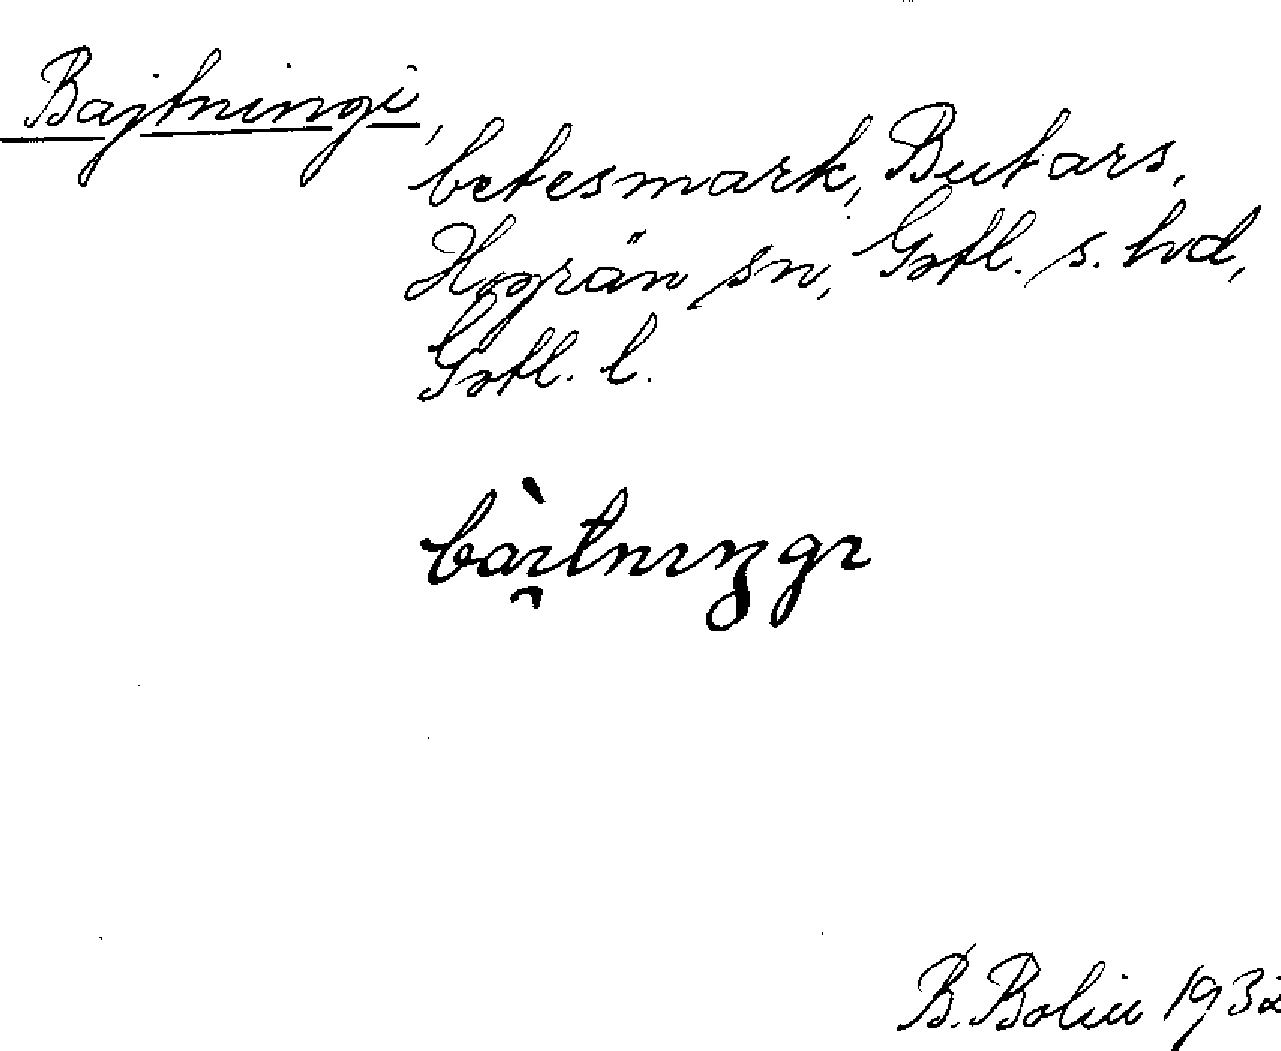 Bajtningi,
betesmark, Butars,
Hogrän sn, Gotl. s. hd,
Gotl. l.
bàɪ̯tnɪŋgɪ
B. Bolin 1932